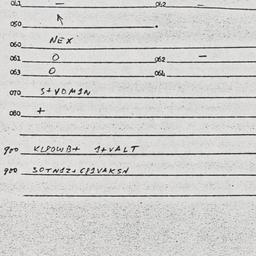 041 — 042 —
050
060 NEX
061 0 062 —
063 0 064
070 S+VOM1N
080 +
900 KLPOWB+ 1+VALT
900 SOTN1Z+CP1VAKSN